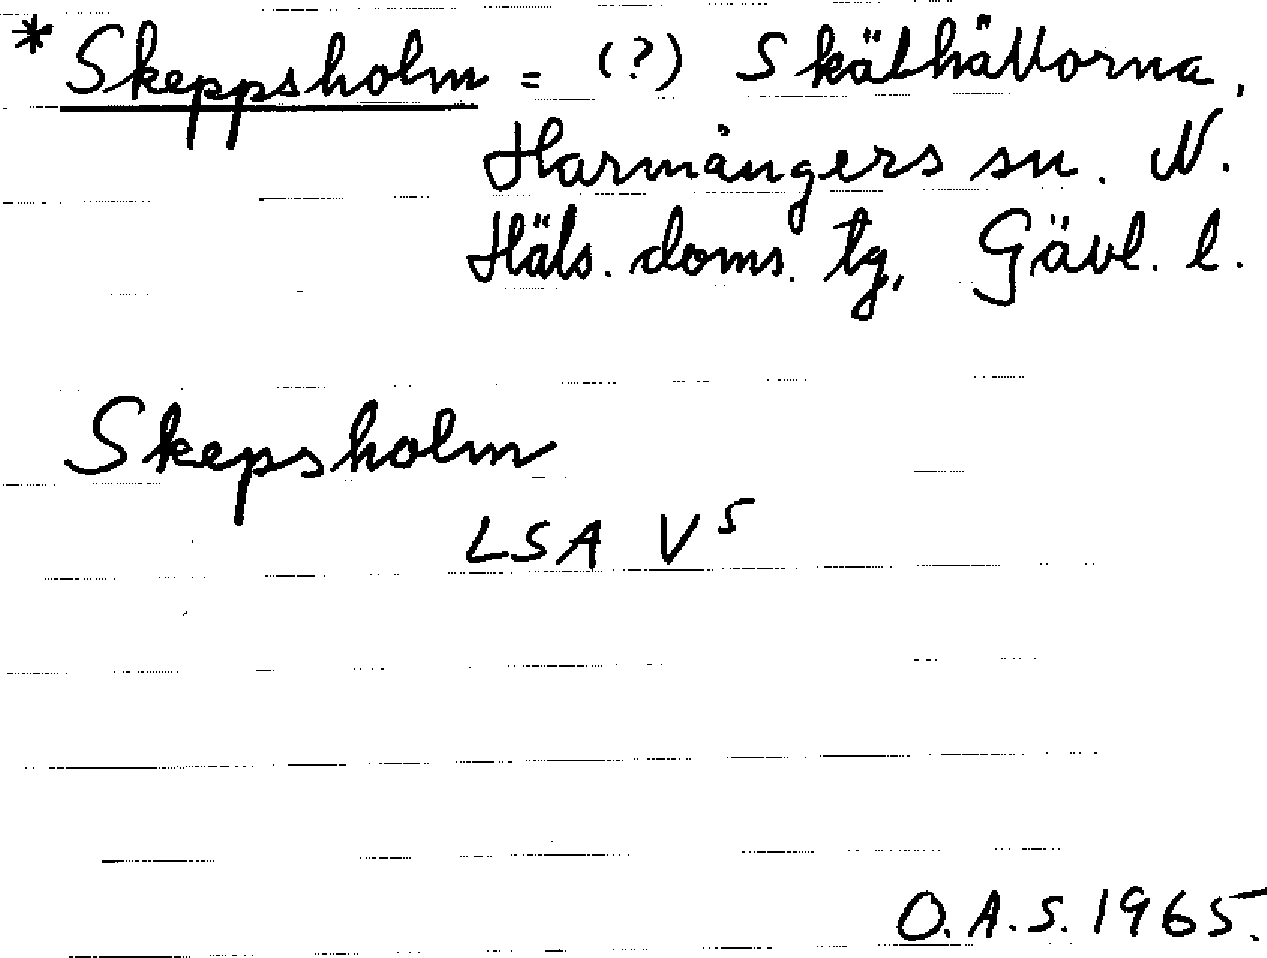 * Skeppsholm = (?) Skälhällorna,
Harmångers sn. N.
Häls. doms. tg, Gävl. l.
Skepsholm
LSA V⁵
O.A.S. 1965.